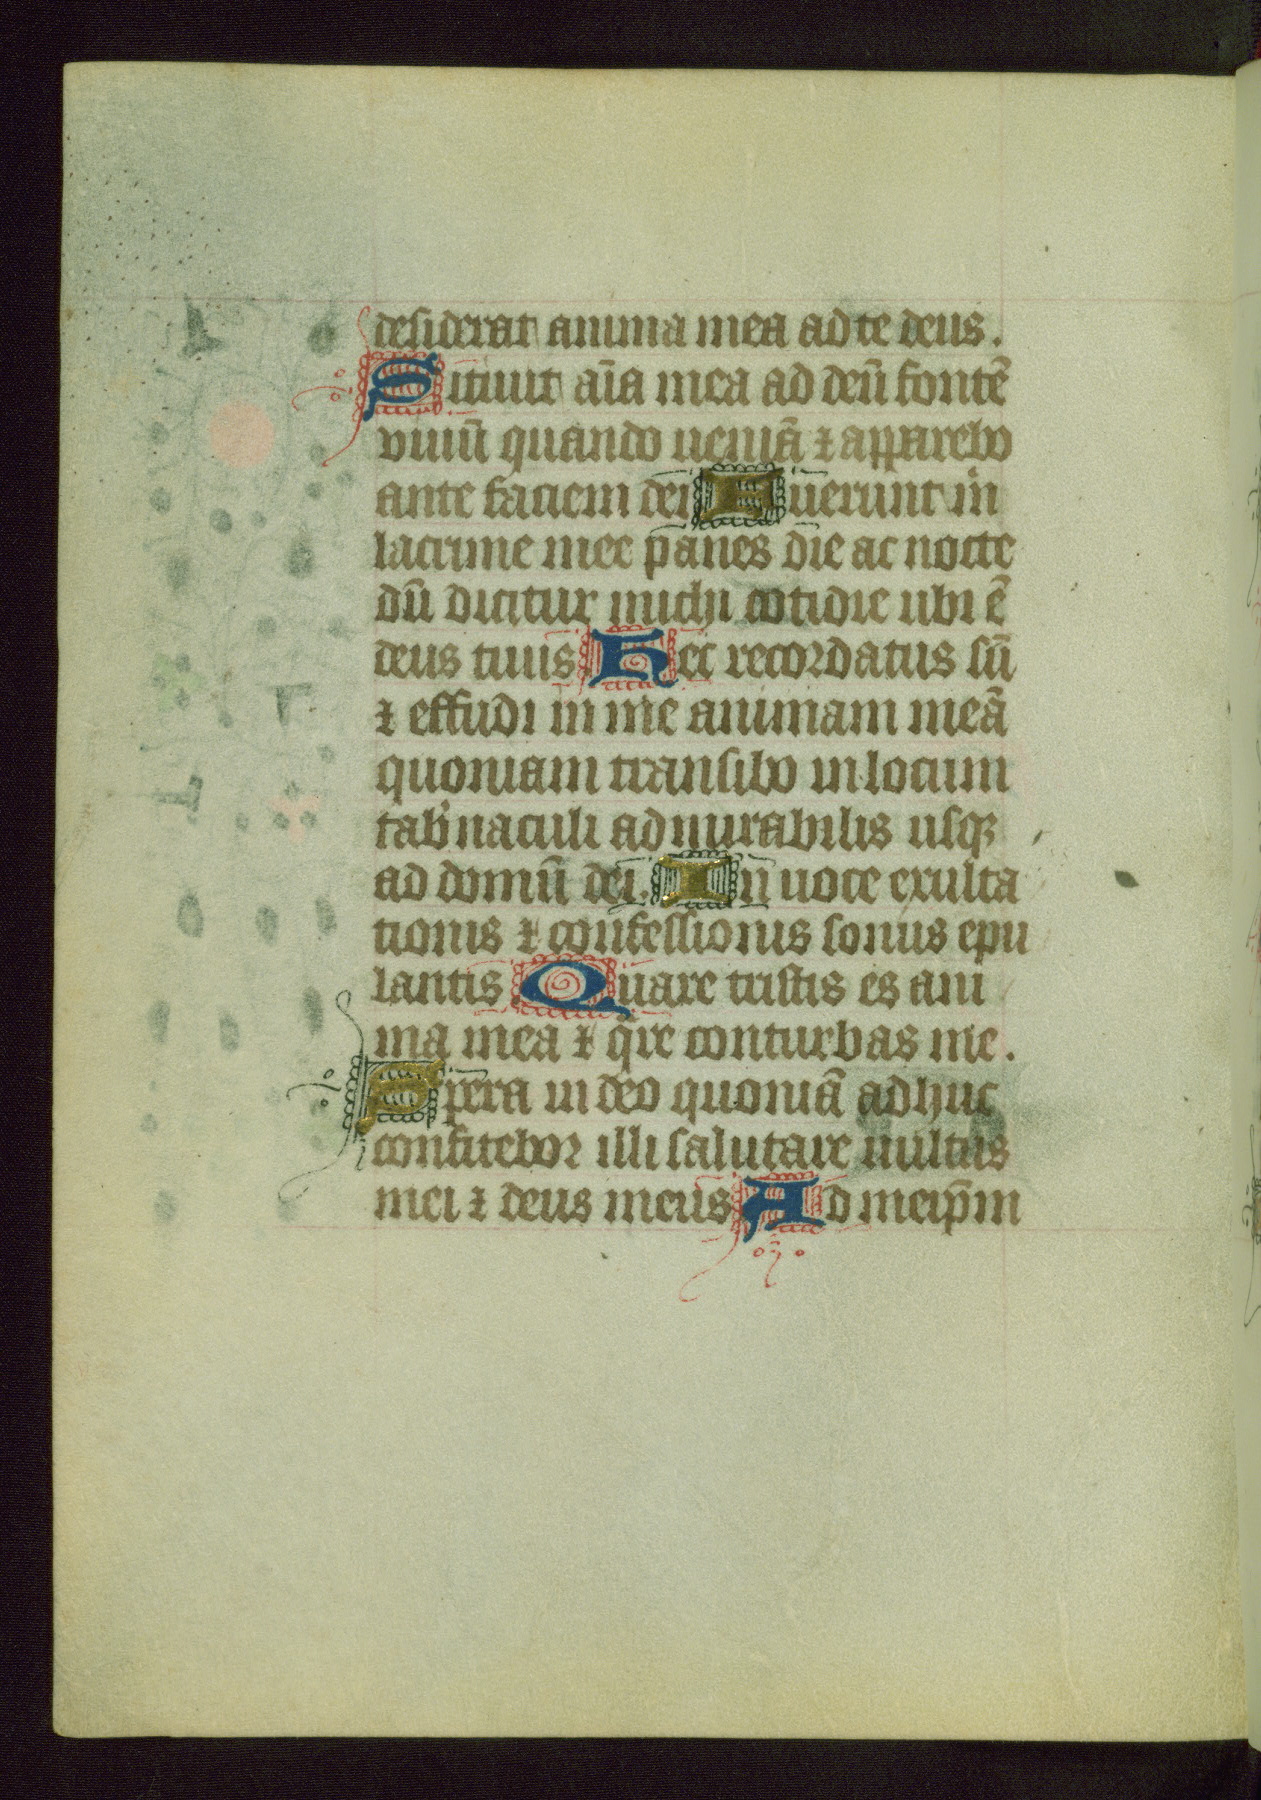 desiderat anima mea ad te deus.
Sitiuit aīa mea ad deū fontē
viuū quando ueniā ⁊ apparebo
ante faciem dei Fuerunt m̄
lacrime mee panes die ac nocte
dū dicitur michi cotidie ubi ē
deus tuus Hec recordatus sū
⁊ effudi in me animam meā
quoniam transibo in locum
tab'naculi admirabilis usqꝫ
ad domū dei. In uoce exulta
tionis ⁊ confessionis sonus epu
lantis Quare tristis es ani
ma mea ⁊ qͣre conturbas me.
Spera in deo quoniā adhuc
confitebor illi salutare uultus
mei ⁊ deus meus Ad meip̄m